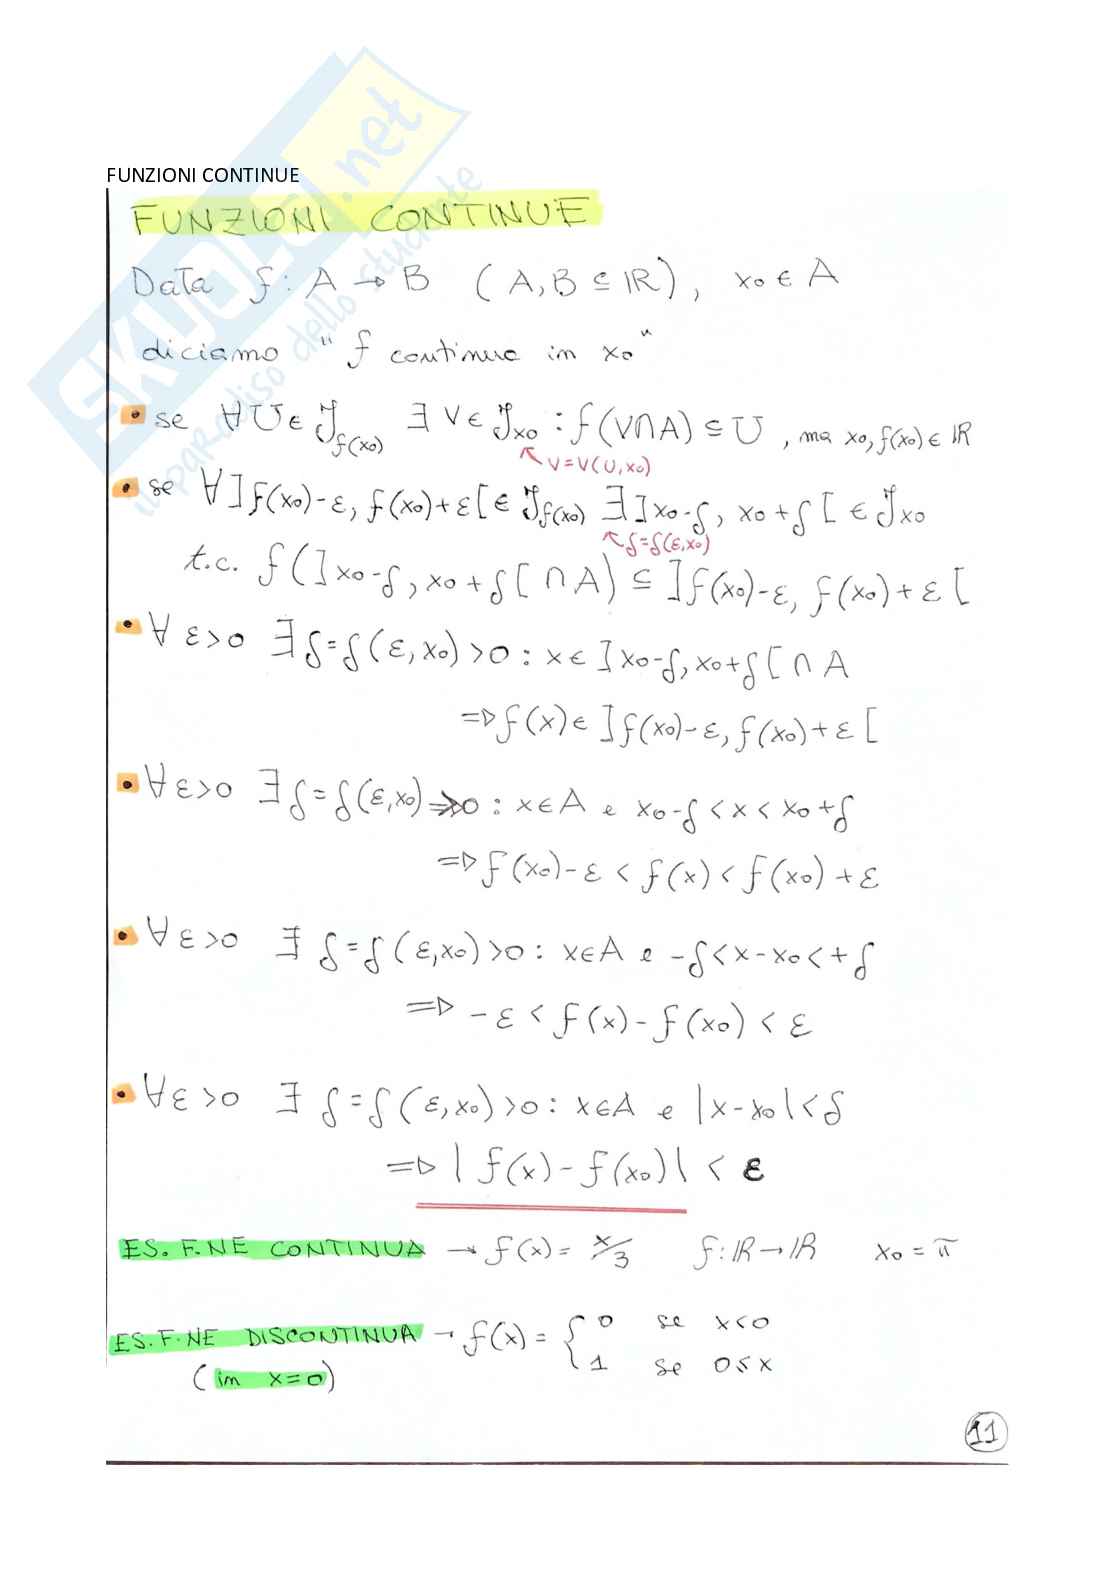 SKUOLA.net
il paradiso dello studente
FUNZIONI CONTINUE
FUNZIONI CONTINUE
Data f: A → B (A, B ⊆ ℝ), x₀ ∈ A
diciamo "f continua in x₀"
• se ∀ U ∈ ℐ_f(x₀) ∃ V ∈ ℐ_x₀ : f(V∩A) ⊆ U, ma x₀, f(x₀) ∈ ℝ
V = V(U, x₀)
• se ∀ ]f(x₀)-ε, f(x₀)+ε[ ∈ ℐ_f(x₀) ∃ ]x₀-δ, x₀+δ[ ∈ ℐ_x₀
δ=δ(ε,x₀)
t.c. f(]x₀-δ, x₀+δ[ ∩ A) ⊆ ]f(x₀)-ε, f(x₀)+ε[
• ∀ ε>0 ∃ δ=δ(ε, x₀) >0 : x ∈ ]x₀-δ, x₀+δ[ ∩ A
⇒ f(x) ∈ ]f(x₀)-ε, f(x₀)+ε[
• ∀ ε>0 ∃ δ=δ(ε,x₀) >0 : x∈A e x₀-δ < x < x₀+δ
⇒ f(x₀)-ε < f(x) < f(x₀)+ε
• ∀ ε>0 ∃ δ=δ(ε,x₀) >0 : x∈A e -δ < x-x₀ < +δ
⇒ -ε < f(x)-f(x₀) < ε
• ∀ ε>0 ∃ δ=δ(ε,x₀) >0 : x∈A e |x-x₀| < δ
⇒ |f(x)-f(x₀)| < ε
ES. F.NE CONTINUA → f(x) = x/3 f: ℝ→ℝ x₀ = π
ES. F.NE DISCONTINUA → f(x) = { 0 se x<0
(in x=0) 1 se 0≤x
11